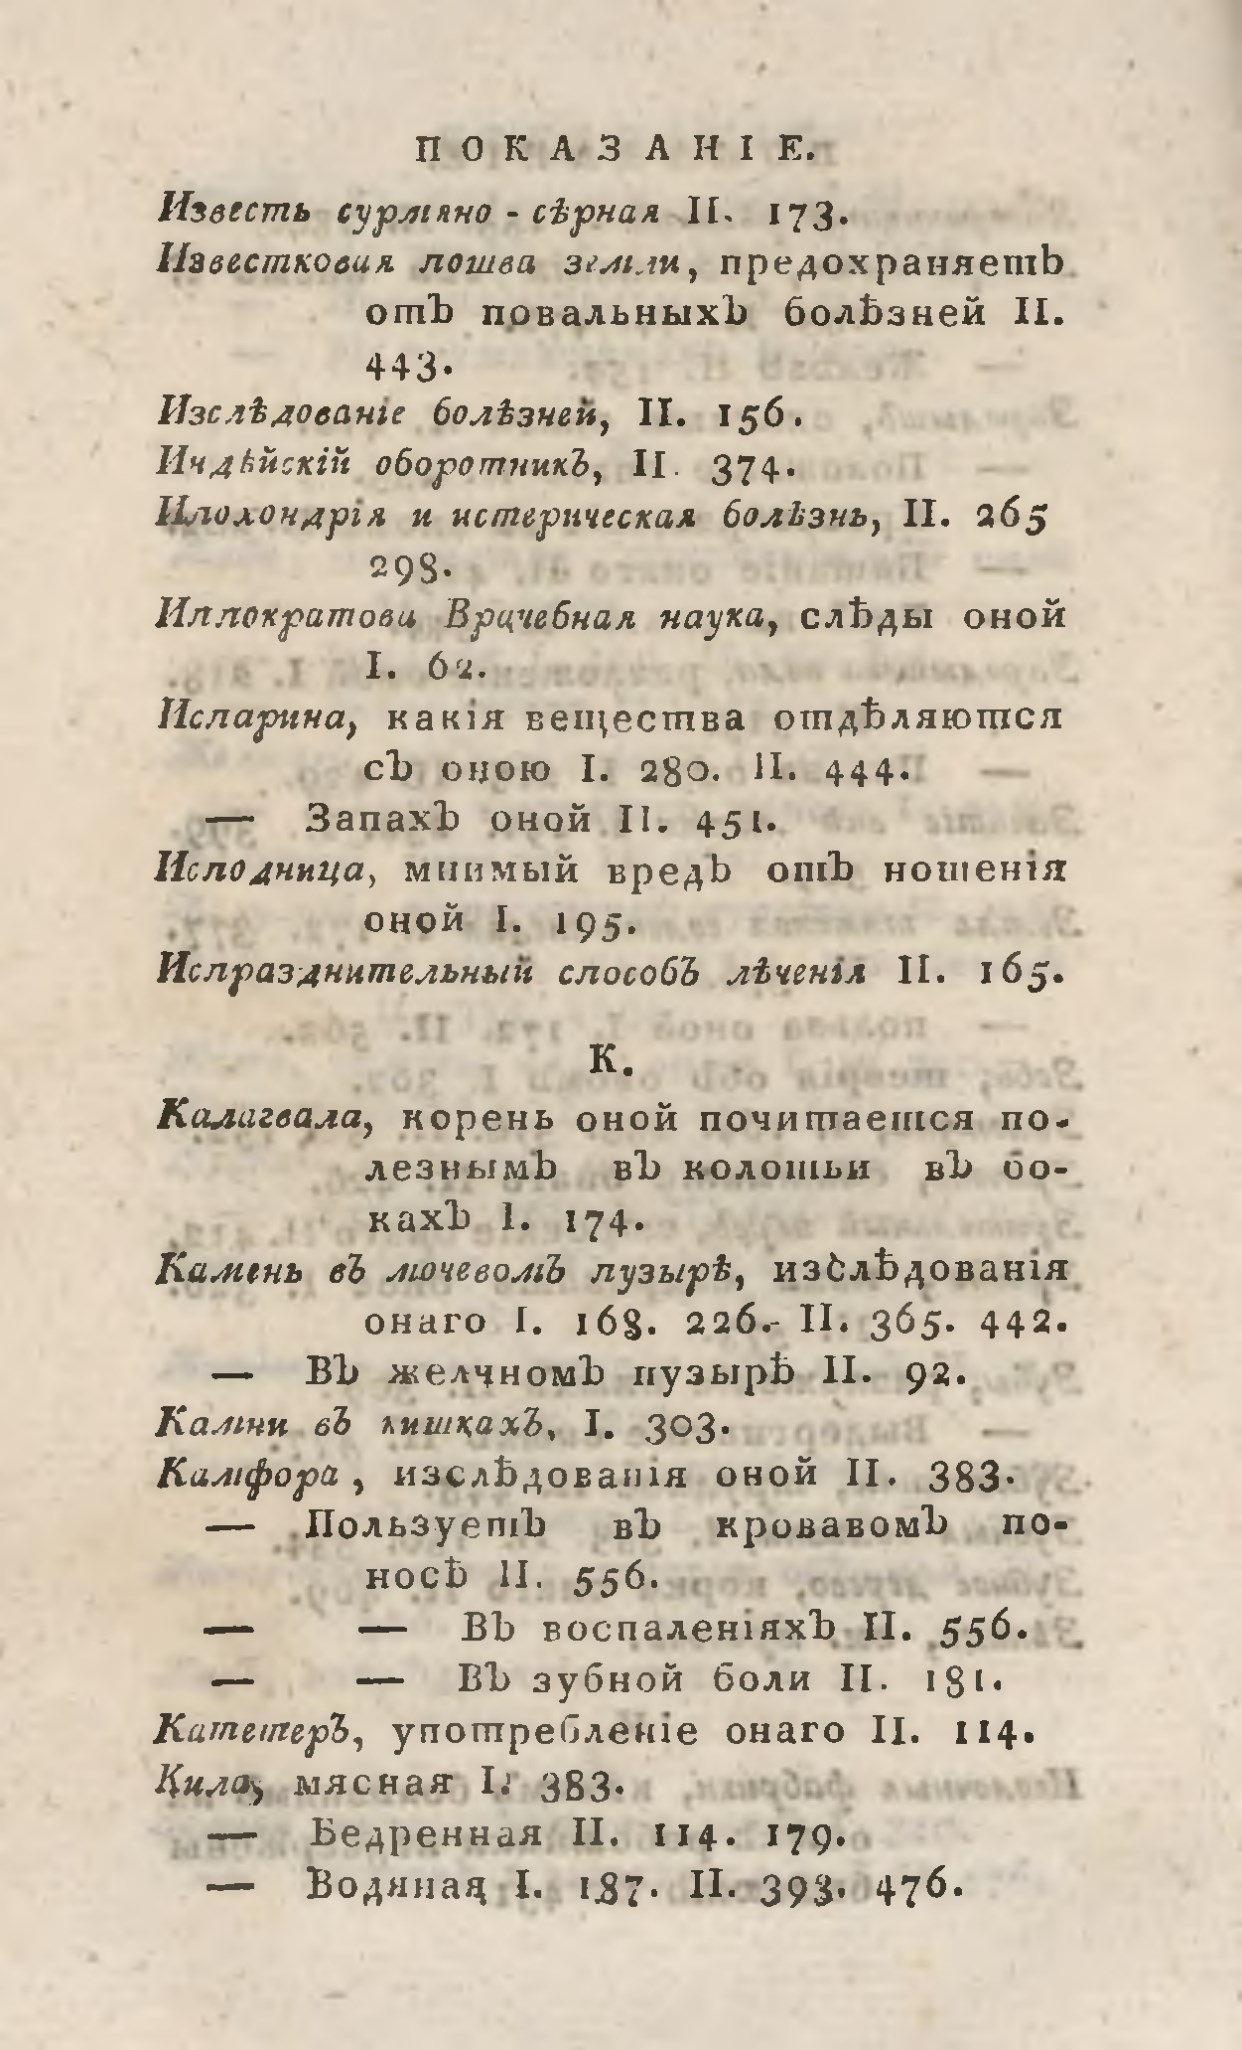 ПОКАЗАНІЕ.
Известь сурмяно - сѣрная II. 173.
Известковая почва земли, предохраняетъ
отъ повальныхъ болѣзней II.
443.
Изслѣдованіе болѣзней, II. 156.
Индѣйскій оборотникъ, II. 374.
Ипохондрія и истерическая болѣзнь, II. 265
298.
Иппократова Врачебная наука, слѣды оной
I. 62.
Испарина, какія вещества отдѣляются
съ оною I. 280. II. 444.
— Запахъ оной II. 451.
Исподница, мнимый вредъ отъ ношенія
оной I. 195.
Испразднительный способъ лѣченія II. 165.
К.
Калагвала, корень оной почитается по-
лезнымъ въ колотьи въ бо-
кахъ I. 174.
Камень въ мочевомъ пузырѣ, изслѣдованія
онаго I. 168. 226.- II. 365. 442.
— Въ желчномъ пузырѣ II. 92.
Камни въ кишкахъ, I. 303.
Камфора , изслѣдованія оной II. 383.
— Пользуетъ въ кровавомъ по-
носѣ II. 556.
— — Въ воспаленіяхъ II. 556.
— — Въ зубной боли II. 181.
Катетеръ, употребленіе онаго II. 114.
Кила, мясная I. 383.
— Бедренная II. 114. 179.
— Водяная I. 187. II. 393. 476.